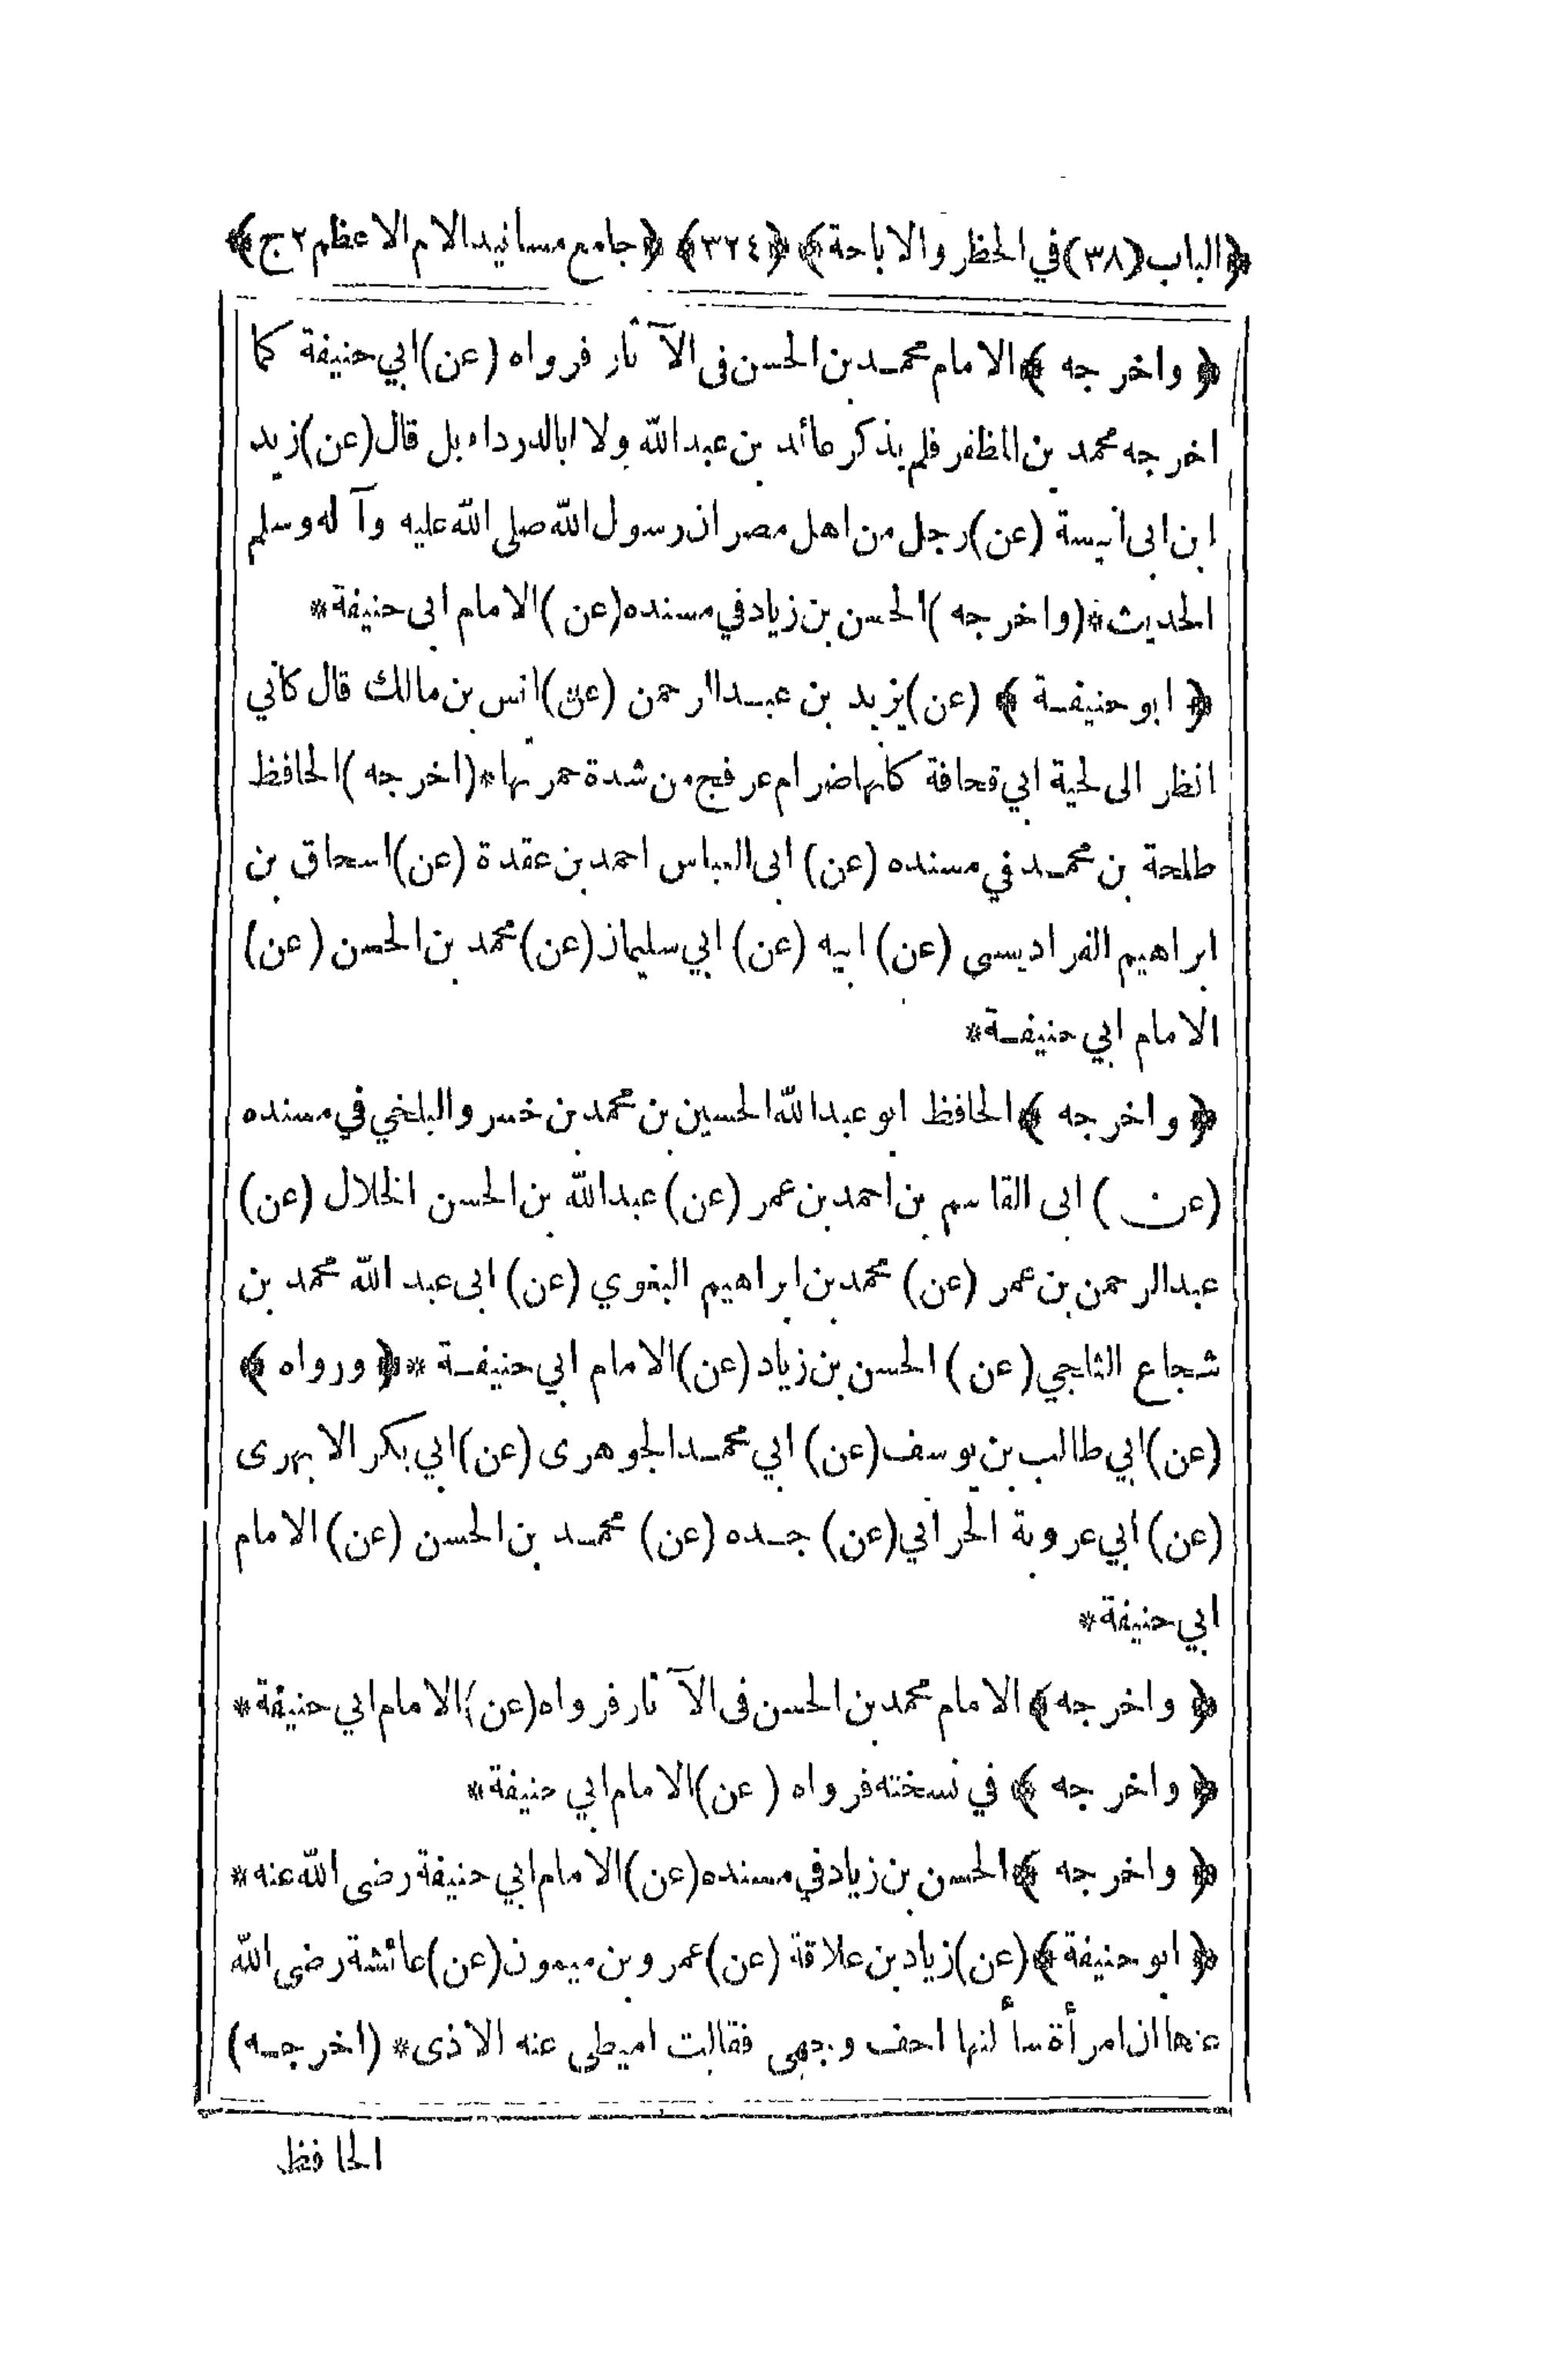 ﴿الباب(٣٨)في الحظر والاباحة﴾ ﴿٣٢٤﴾ ﴿جامع مسانيد الامام الاعظم ٢ج﴾
﴿ واخرجه ﴾ الامام محمد بن الحسن فى الآثار فرواه (عن) ابي حنيفة كما
اخرجه محمد بن المظفر فلم يذكر عائد بن عبدالله ولا اباالدرداء بل قال (عن) زيد
ابن ابى أنيسة (عن) رجل من اهل مصر ان رسول الله صلى الله عليه وآله وسلم
الحديث*(واخرجه) الحسن بن زياد في مسنده (عن) الامام ابى حنيفة*
﴿ ابو حنيفة ﴾ (عن) يزيد بن عبدالرحمن (عن) انس بن مالك قال كأني
انظر الى لحية ابي قحافة كأنها ضرام عرفج من شدة حمرتها*(اخرجه) الحافظ
طلحة بن محمد في مسنده (عن) ابى العباس احمد بن عقدة (عن) اسحاق بن
ابراهيم الفراديسى (عن) ابيه (عن) ابي سليمان (عن) محمد بن الحسن (عن)
الامام ابي حنيفة*
﴿ واخرجه ﴾ الحافظ ابو عبدالله الحسين بن محمد بن خسرو البلخي في مسنده
(عن) ابى القاسم بن احمد بن عمر (عن) عبدالله بن الحسن الخلال (عن)
عبدالرحمن بن عمر (عن) محمد بن ابراهيم البغوي (عن) ابى عبد الله محمد بن
شجاع الثلجي (عن) الحسن بن زياد (عن) الامام ابي حنيفة *﴿ ورواه ﴾
(عن) ابي طالب بن يوسف (عن) ابي محمد الجوهرى (عن) ابي بكر الابهرى
(عن) ابي عروبة الحراني (عن) جده (عن) محمد بن الحسن (عن) الامام
ابي حنيفة*
﴿ واخرجه ﴾ الامام محمد بن الحسن فى الآثار فرواه (عن) الامام ابي حنيفة*
﴿ واخرجه ﴾ في نسخته فرواه (عن) الامام ابي حنيفة*
﴿ واخرجه ﴾ الحسن بن زياد في مسنده (عن) الامام ابي حنيفة رضى الله عنه*
﴿ ابو حنيفة ﴾ (عن) زياد بن علاقة (عن) عمرو بن ميمون (عن) عائشة رضى الله
عنها ان امرأة سألتها احف وجهى فقالت اميطى عنه الاذى* (اخرجه)
الحافظ